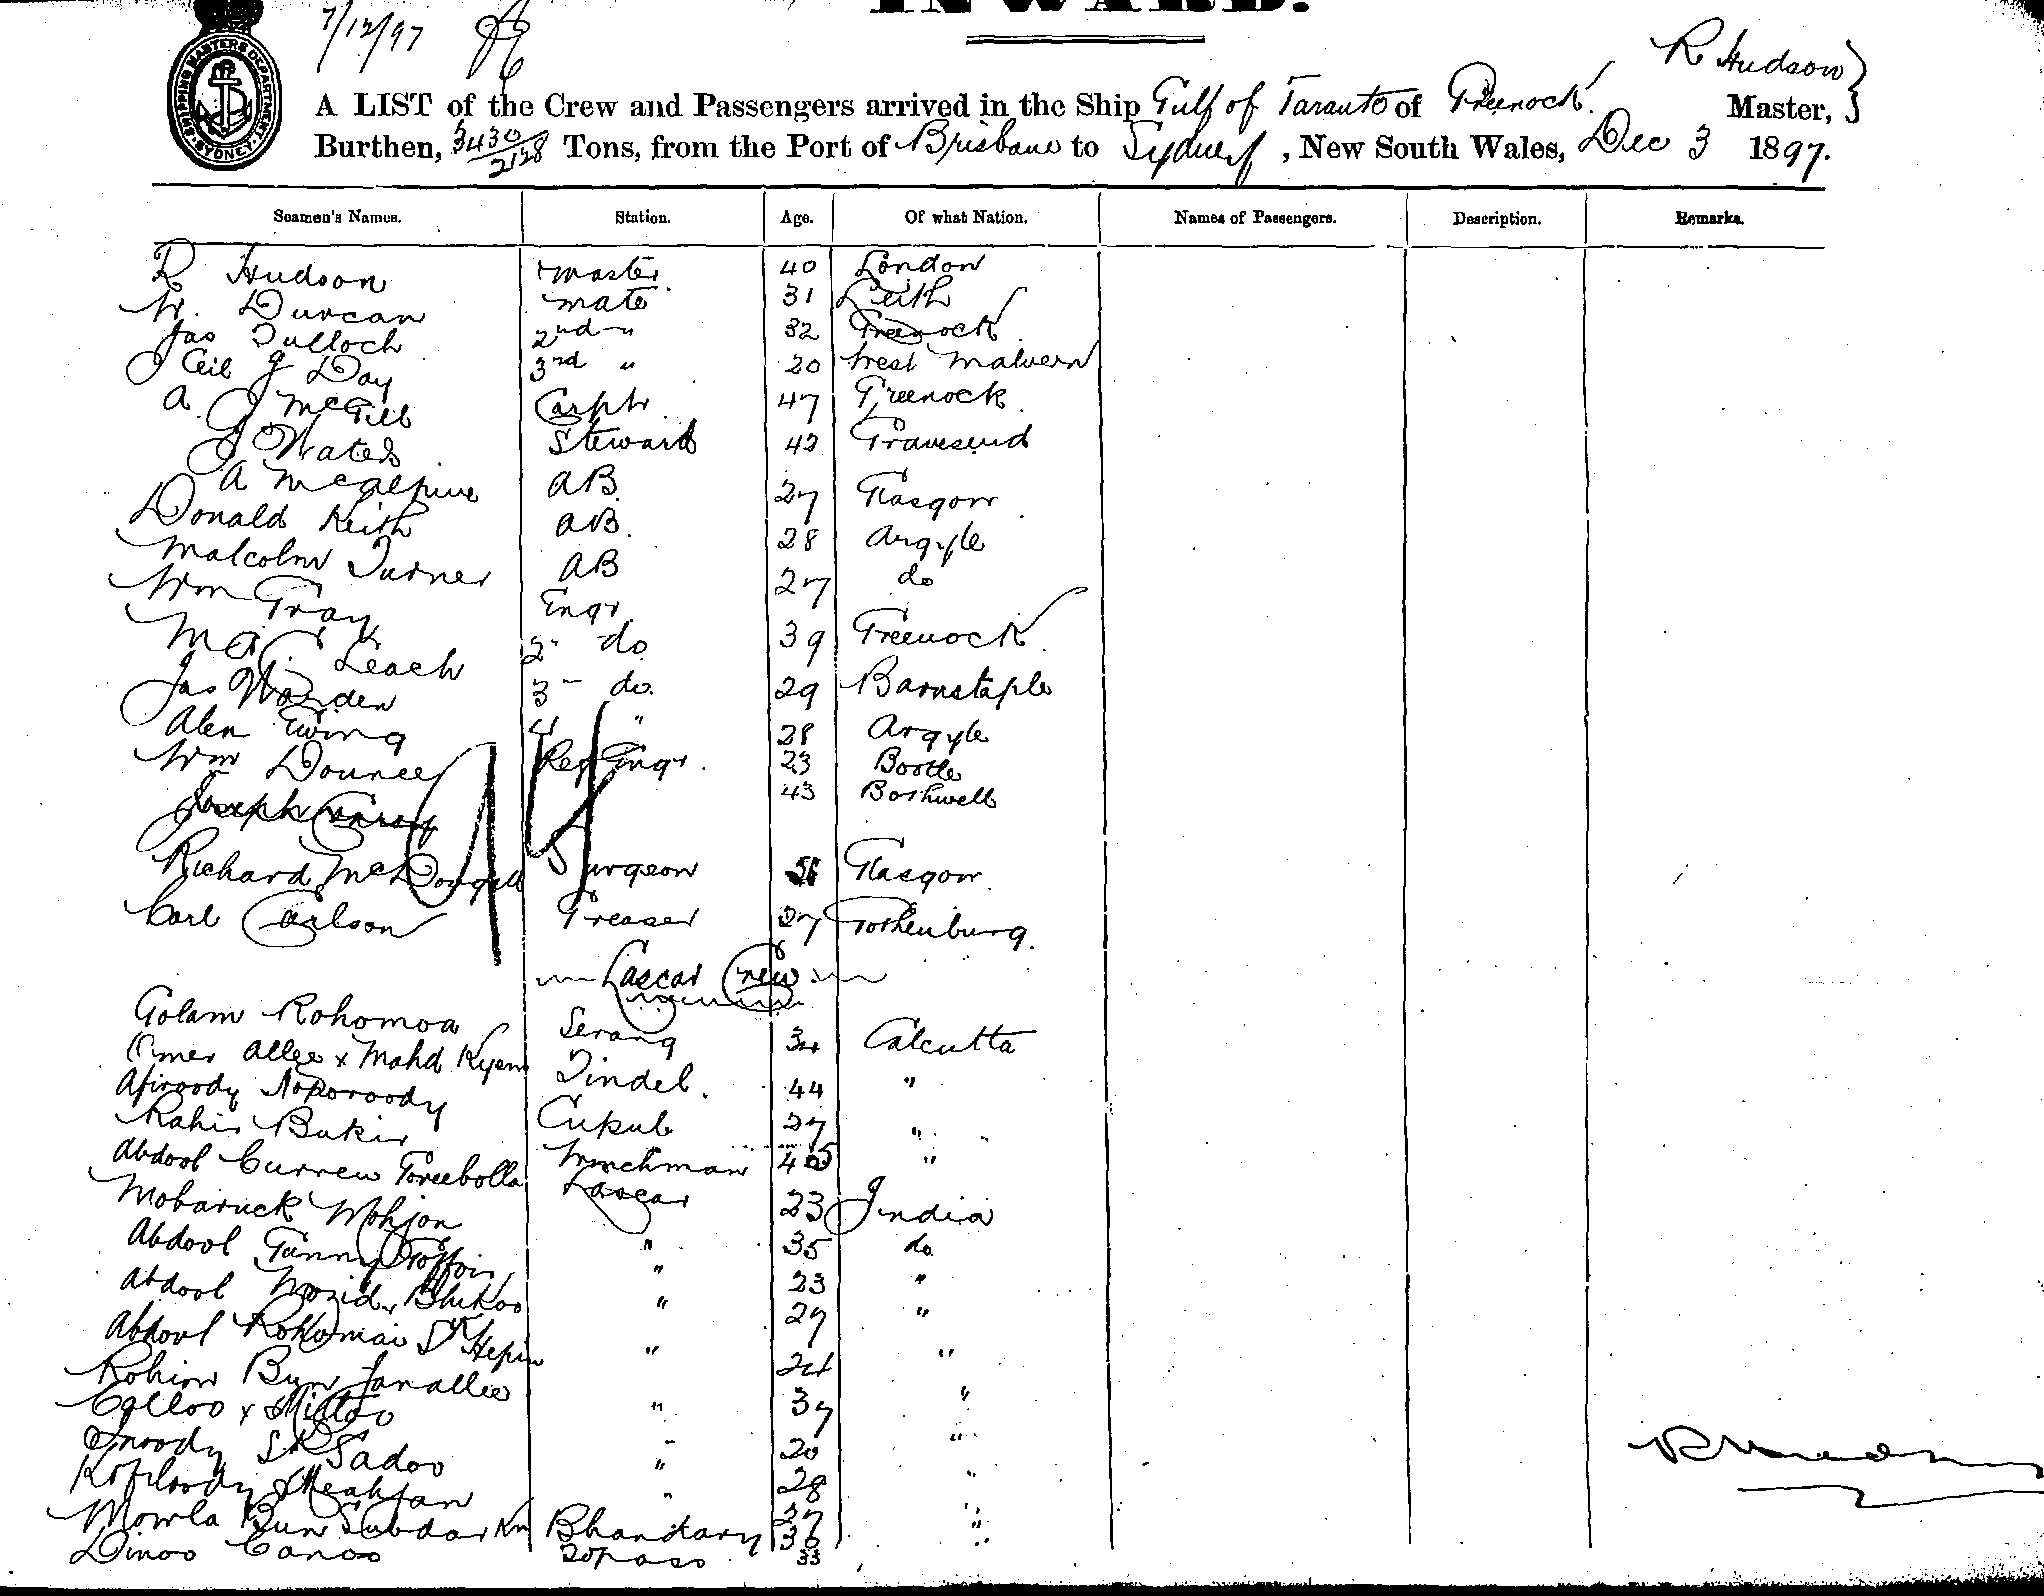 INWARD.
7/12/97
R Hudson
SHIPPING MASTERS DEPARTMENT
SYDNEY
A LIST of the Crew and Passengers arrived in the Ship Gulf of Taranto of Greenock. Master,
Burthen, 3430/2128 Tons, from the Port of Brisbane to Sydney, New South Wales, Dec 3 1897.
Seamen's Names. Station. Age. Of what Nation. Names of Passengers. Description. Remarks.
R Hudson master 40 London
W. Duncan mate 31 Leith
Jas Tulloch 2nd " 32 Greenock
Ceil J Day 3rd " 20 West Malvern
A. J McGill Carptr 47 Greenock
J Waters Steward 42 Gravesend
A McAlpine AB. 27 Glasgow
Donald Keith AB. 28 Argyle
Malcolm Turner AB 27 do
Wm Gray Engr 39 Greenock
Leach 2" do 29 Barnstaple
Jas Warden 3" do. 28 Argyle
Alen Ewing 4 " 23 Bootle
Wm Douncey Ref Engr. 43 Bothwell
Joseph Conray
Richard McDougall Surgeon Glasgow
Carl Carlson Greaser 27 Gothenburg.
Lascar Crew
Golam Rohomoa Serang 34 Calcutta
Omer Allee x Mahd Kyem Tindel. 44 "
Afiroody Noporoody Cukub 27 "
Rahir Bukir Winchman "
Abdool Curreu Toreebolla Lascar 23 India
Mobaruck Mohjon " 35 do
Abdool Gunny " 23 "
Abdool Wozid Bhikoo " 29 "
Abdool Rohomai Sk Hepin " 24 "
Rohim Bux Janallee " 37 "
Calloo x Mittoo " 20 "
Sk Sadoo " 28 "
Meahjan " 27 "
Mowla Bux Subdar Kn Bhandary 36 "
Dinoo Canoo Topass 33 "